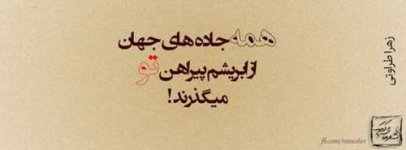 همه جاده های جهان
از ابریشم پیراهن تو
میگذرند!
زهرا طراوتی